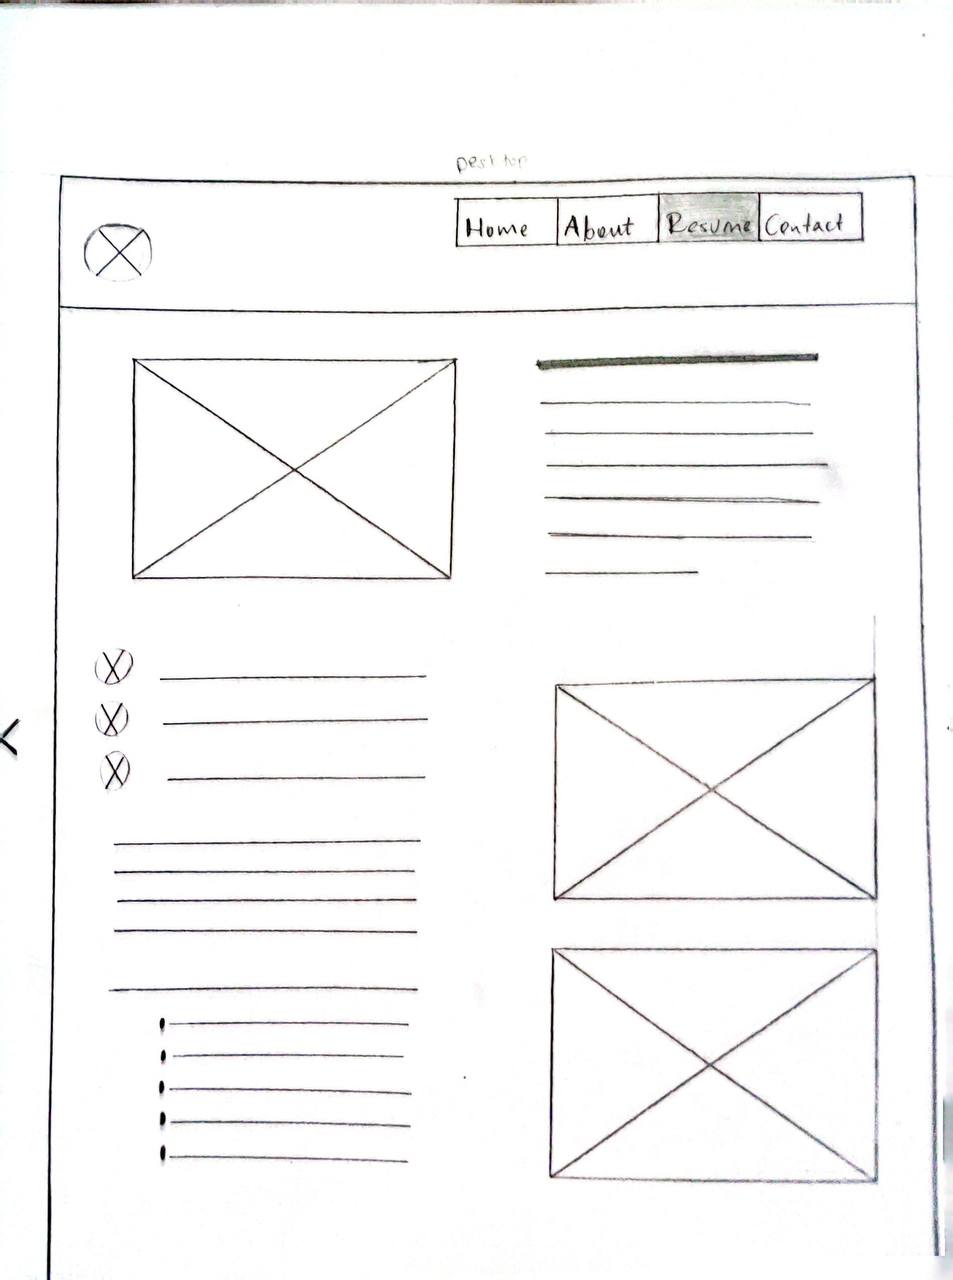 Desktop
Home About Resume Contact